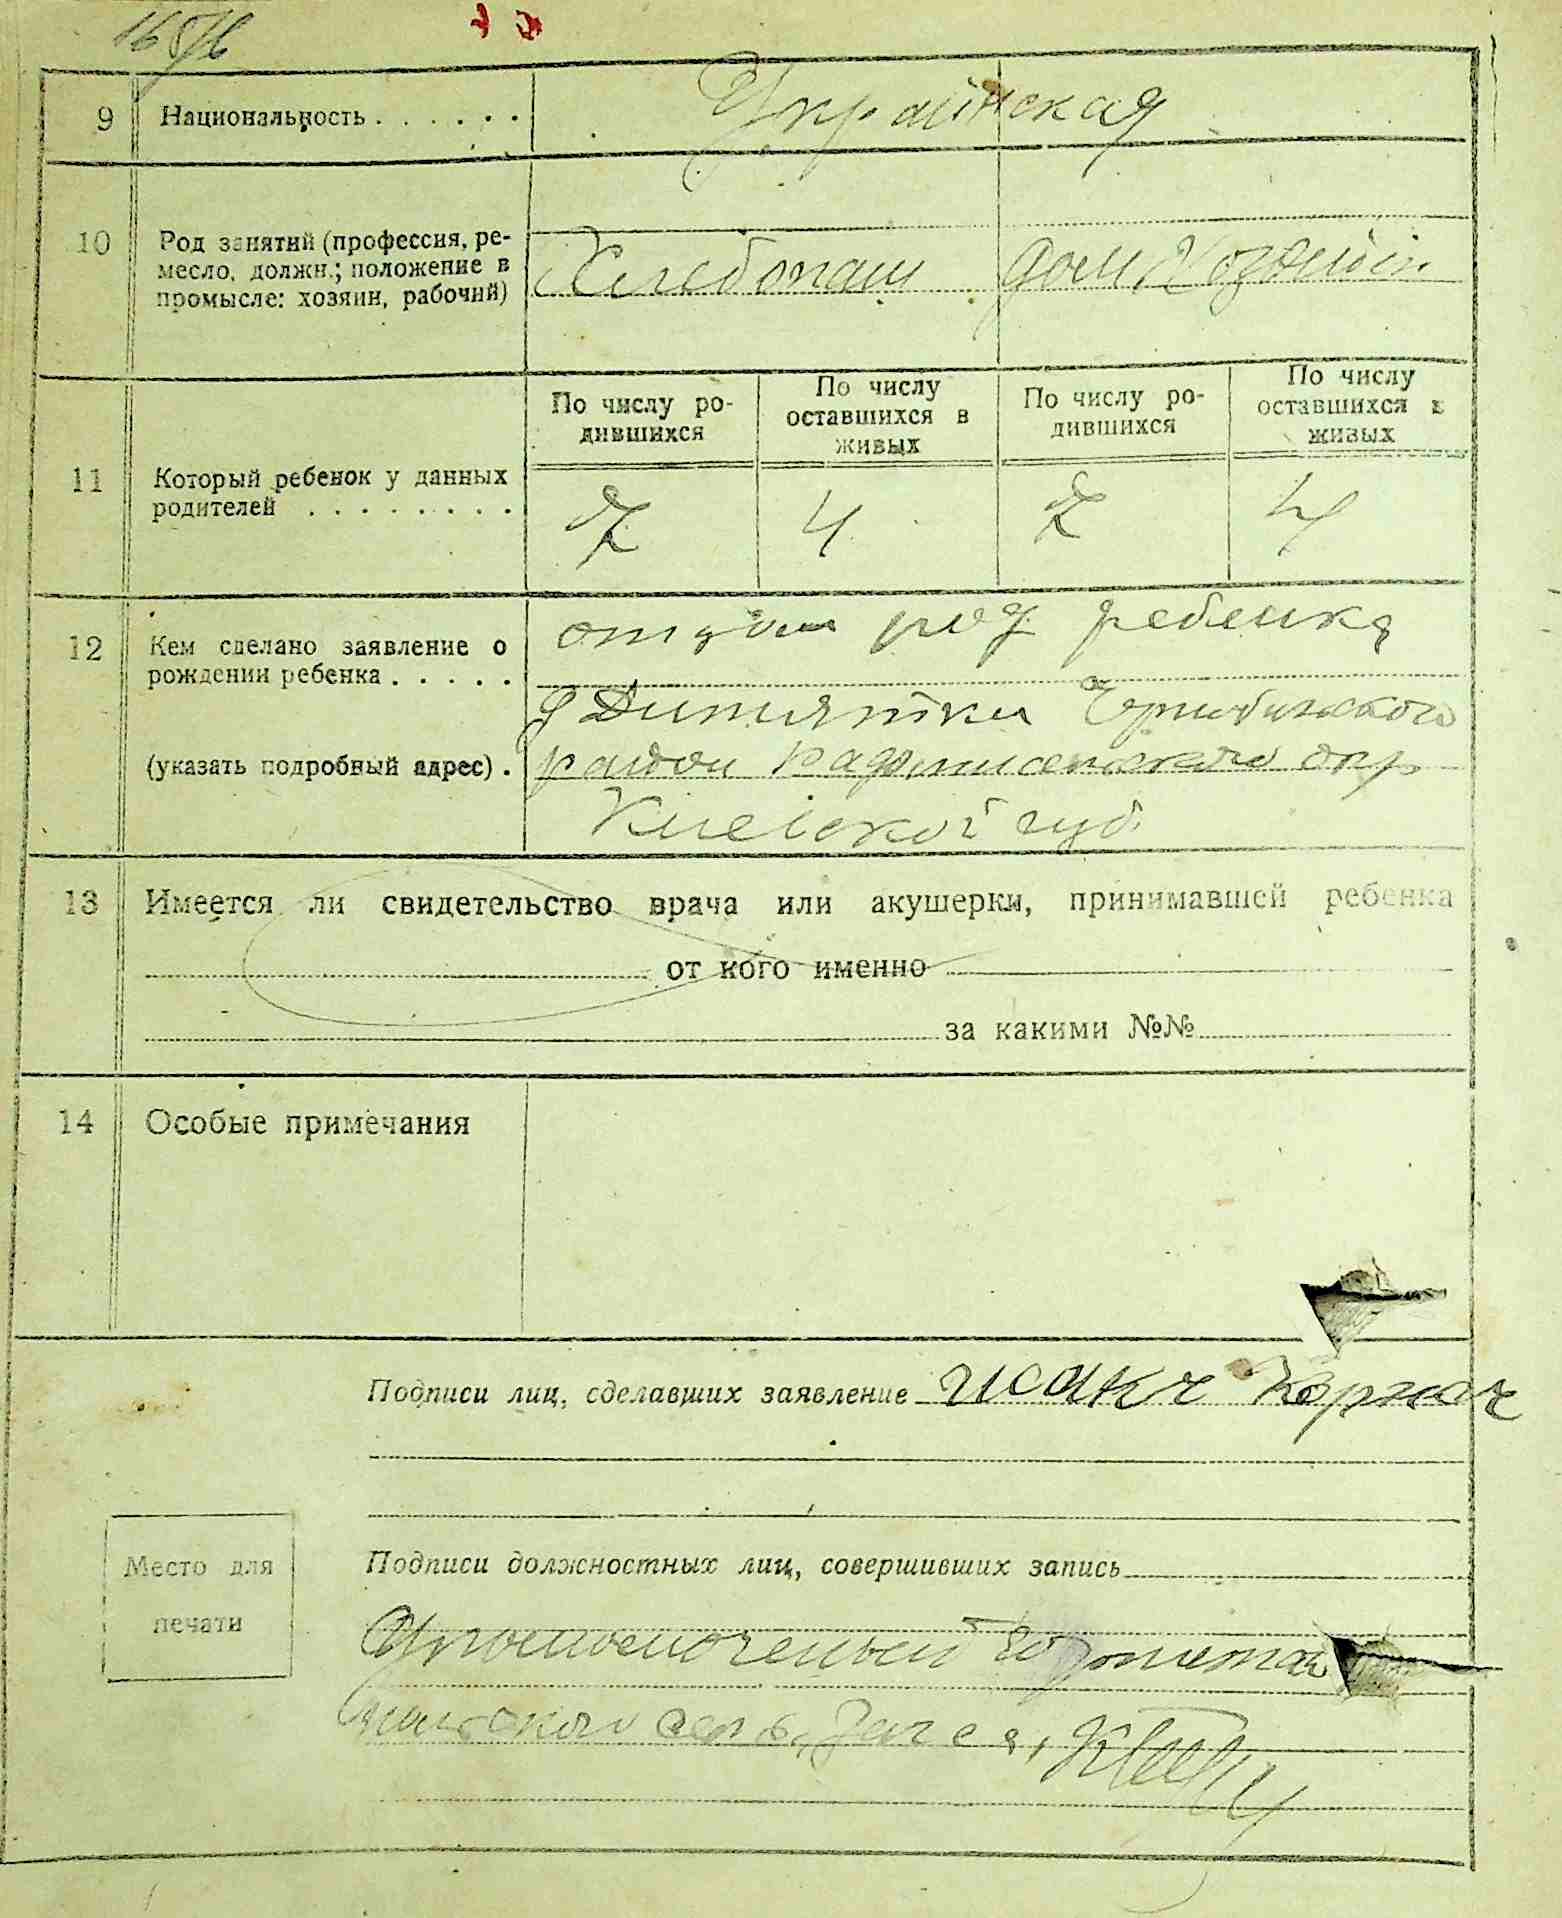 9 Национальность . . . . . . Украинская
10 Род занятий (профессия, ре-
месло, должн.; положение в
промысле: хозяин, рабочий)
Хлебопаш дом. хозяйк.
По числу ро-
дившихся
По числу
оставшихся в
живых
По числу ро-
дившихся
По числу
оставшихся в
живых
11 Который ребенок у данных
родителей . . . . . . . .
7 4 7 4
12 Кем сделано заявление о
рождении ребенка . . . . .
(указать подробный адрес) .
отцом ребенка
Дитятки
район окр
Киевской губ.
13 Имеется ли свидетельство врача или акушерки, принимавшей ребенка
от кого именно
за какими №№
14 Особые примечания
Подписи лиц, сделавших заявление
Место для
печати
Подписи должностных лиц, совершивших запись